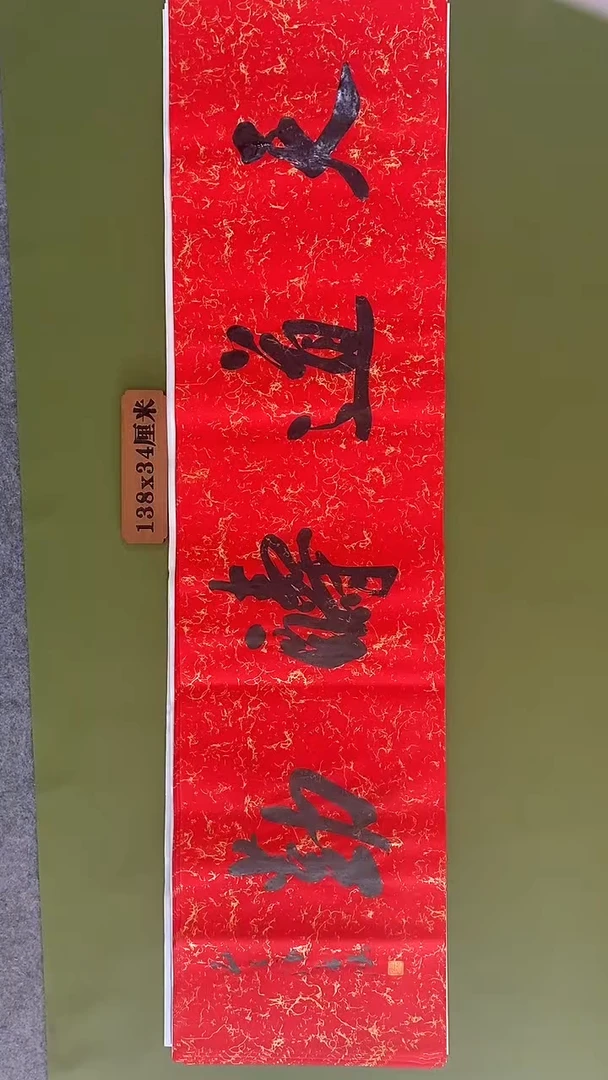 天道酬勤
138x34厘米